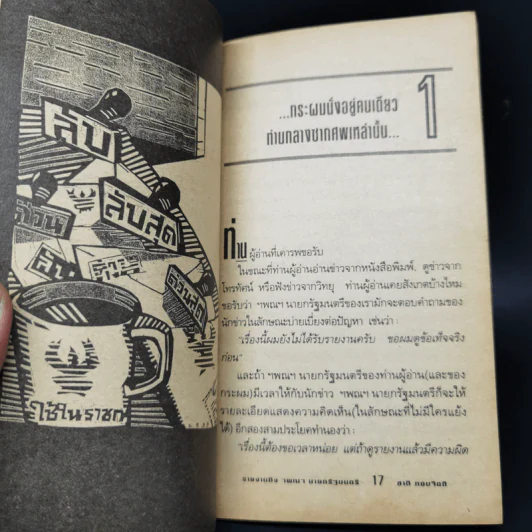 ลับ
ลับสุด
ด่วน
ลับ
ด่วนสุด
ใช้ในราชก
...กระผมนั่งอยู่คนเดียว
ท่ามกลางซากศพเหล่านั้น...
1
ท่าน ผู้อ่านที่เคารพขอรับ
ในขณะที่ท่านผู้อ่านอ่านข่าวจากหนังสือพิมพ์, ดูข่าวจาก
โทรทัศน์ หรือฟังข่าวจากวิทยุ ท่านผู้อ่านเคยสังเกตบ้างไหม
ขอรับว่า ฯพณฯ นายกรัฐมนตรีของเรามักจะตอบคำถามของ
นักข่าวในลักษณะบ่ายเบี่ยงต่อปัญหา เช่นว่า :
"เรื่องนี้ผมยังไม่ได้รับรายงานครับ ขอผมดูข้อเท็จจริง
ก่อน"
และถ้า ฯพณฯ นายกรัฐมนตรีของท่านผู้อ่าน(และของ
กระผม)มีเวลาให้กับนักข่าว ฯพณฯ นายกรัฐมนตรีก็จะให้
รายละเอียดแสดงความคิดเห็น(ในลักษณะที่ไม่มีใครแย้ง
ได้) อีกสองสามประโยคทำนองว่า :
"เรื่องนี้ต้องขอเวลาหน่อย แต่ถ้าดูรายงานแล้วมีความผิด
รายงานถึง ฯพณฯ นายกรัฐมนตรี 17 ชาติ กอบจิตติ